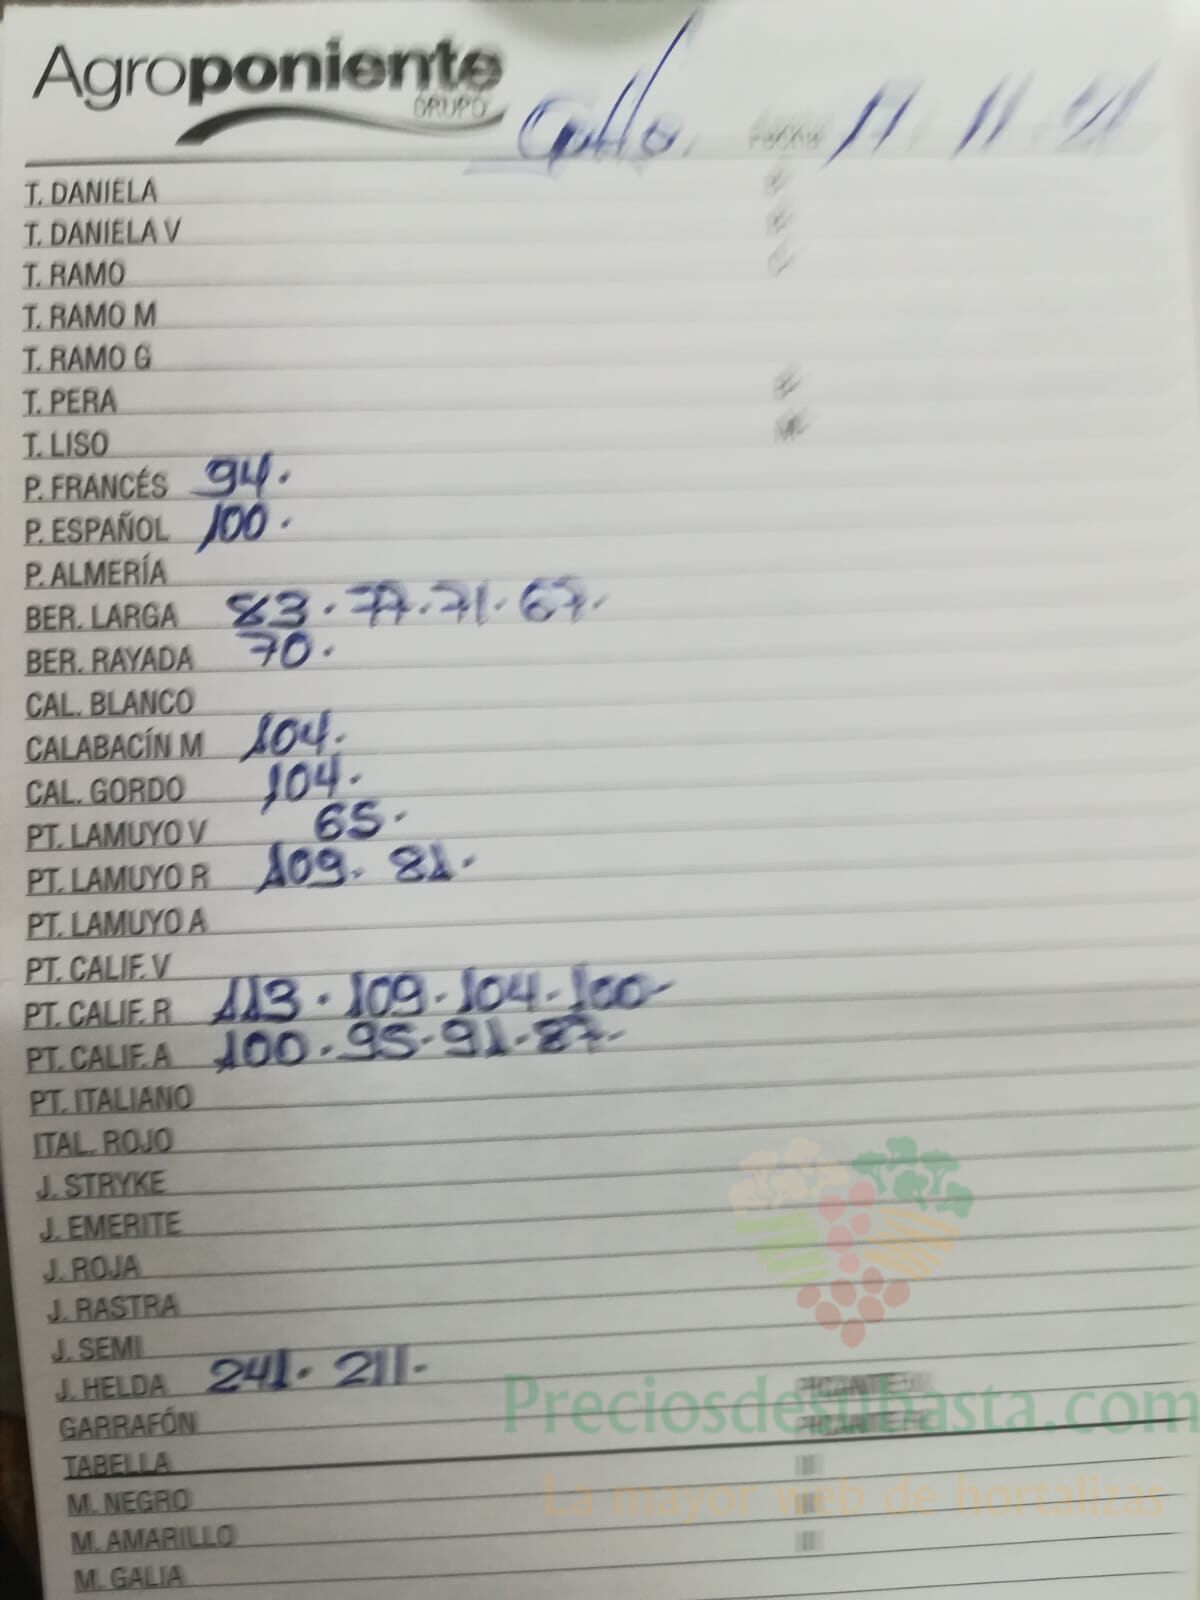 Agroponiente
GRUPO
Fecha 17 11 21
T. DANIELA
T. DANIELA V
T. RAMO
T. RAMO M
T. RAMO G
T. PERA
T. LISO
P. FRANCÉS 94.
P. ESPAÑOL 100.
P. ALMERÍA
BER. LARGA 83. 77. 71. 67.
BER. RAYADA 70.
CAL. BLANCO
CALABACÍN M 104.
CAL. GORDO 104.
PT. LAMUYO V 65.
PT. LAMUYO R 109. 81.
PT. LAMUYO A
PT. CALIF. V
PT. CALIF. R 113. 109. 104. 100-
PT. CALIF. A 100. 95. 91. 87.
PT. ITALIANO
ITAL. ROJO
J. STRYKE
J. EMERITE
J. ROJA
J. RASTRA
J. SEMI
J. HELDA 241. 211.
GARRAFÓN
TABELLA
M. NEGRO
M. AMARILLO
M. GALIA
Preciosdesubasta.com
La mayor web de hortalizas